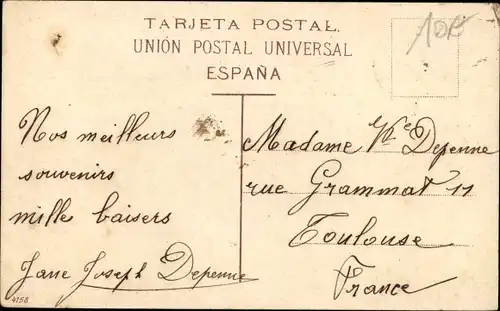 TARJETA POSTAL.
UNIÓN POSTAL UNIVERSAL
ESPAÑA
10€
Nos meilleurs
souvenirs
mille baisers
Jane Joseph Depenne
Madame Vve Depenne
rue Grammat 11
Toulouse
France
4158